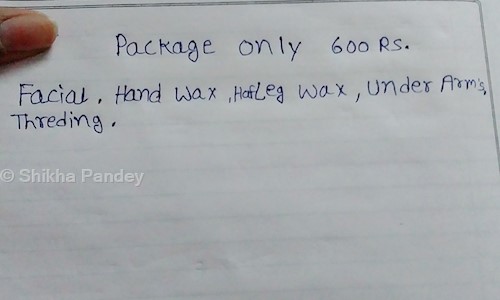 Package only 600 RS.
Facial, Hand Wax, Hafleg Wax, Under Arm's,
Threding.
© Shikha Pandey